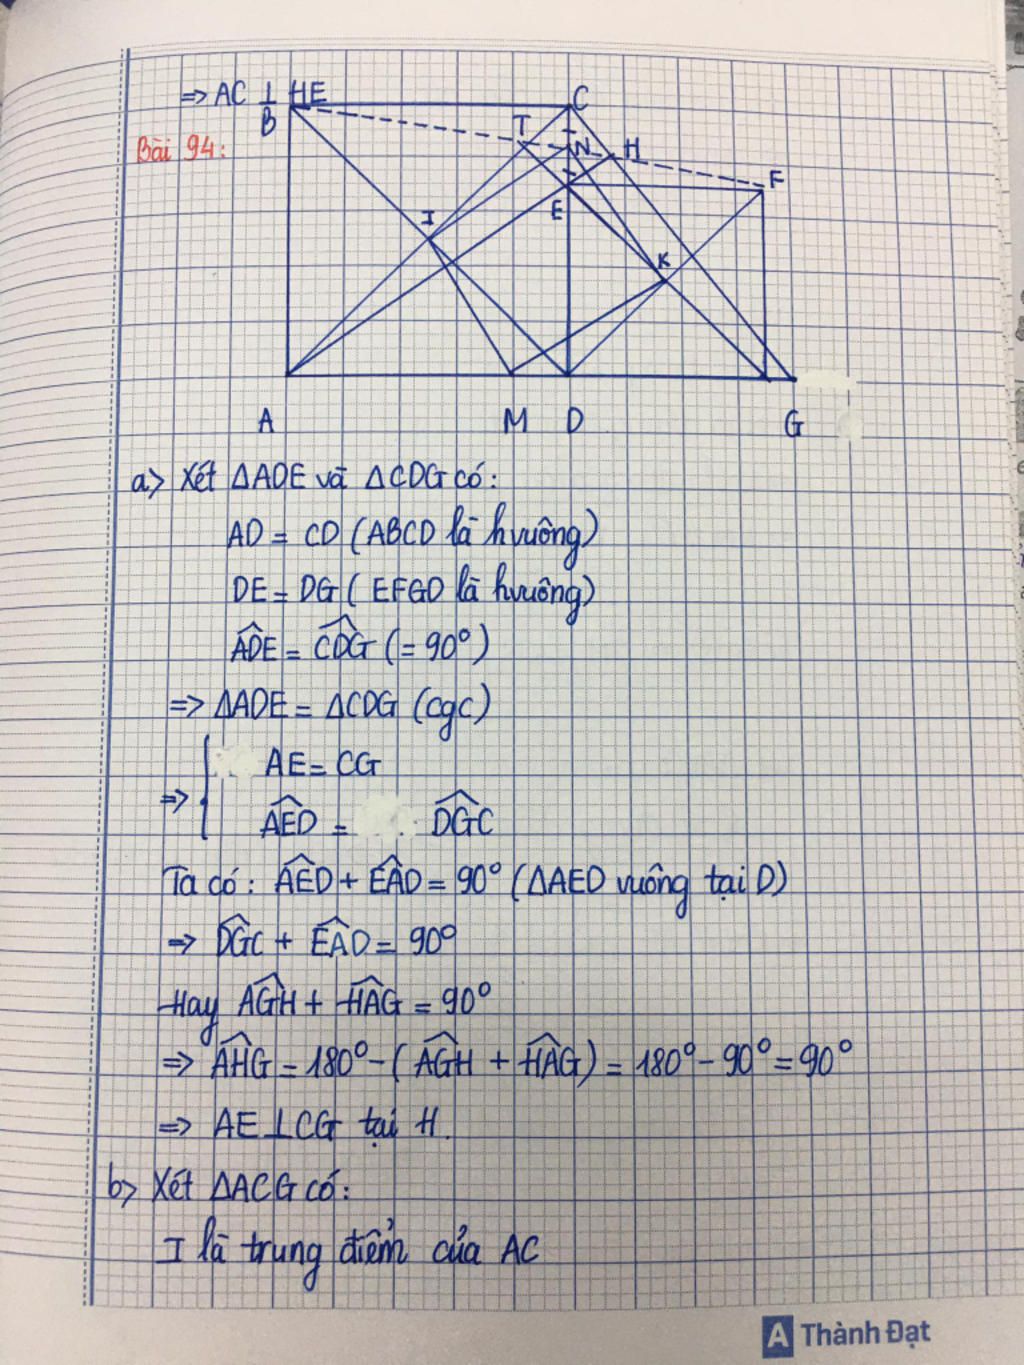 => AC ⊥ HE
B
C
Bài 94:
T
N
H
F
I
E
K
A
M
D
G
a> Xét ΔADE và ΔCDG có:
AD = CD (ABCD là hvuông)
DE = DG ( EFGD là hvuông)
\widehat{ADE} = \widehat{CDG} (= 90°)
=> ΔADE = ΔCDG (cgc)
=> { AE = CG
\widehat{AED} = \widehat{DGC}
Ta có: \widehat{AED} + \widehat{EAD} = 90° (ΔAED vuông tại D)
=> \widehat{DGC} + \widehat{EAD} = 90°
Hay \widehat{AGH} + \widehat{HAG} = 90°
=> \widehat{AHG} = 180° - ( \widehat{AGH} + \widehat{HAG} ) = 180° - 90° = 90°
=> AE ⊥ CG tại H.
b> Xét ΔACG có:
I là trung điểm của AC
A Thành Đạt